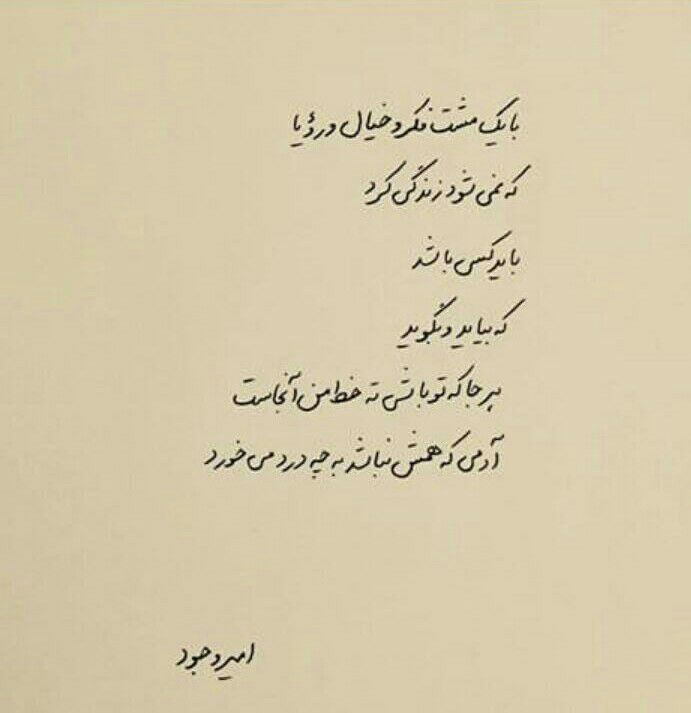 با یک مشت فکر و خیال و رؤیا
که نمی شود زندگی کرد
باید کسی باشد
که بیاید و بگوید
هر جا که تو باشی ته خط من آنجاست
آدمی که همش نباشد به چه درد می خورد
امیر وجود